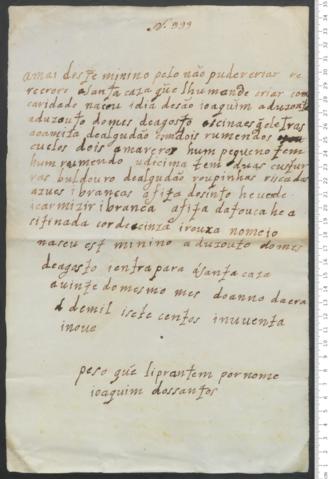 N. 999
amai deste minino pelo não puder criar re
recoreo aSanta caza que lhumande criar com
caridade naceu idia desão joaquim aduzouto
aduzouto domes deagosto oscinaes qe letras
dealgudão com dois rumendos
cuelos dois amarero hum pequeno tem
hum rumendo udicima tem duas custur
ras dealgudão roupinhas riscadas
azues ibrancas afita dosinto he verde
icarmizir ibranca afita datouca he a
sitinada cor decinza irouxa nomeio
nasceu est minino aduzouto domes
deagosto ientra para aSanta caza
auinte domesmo mes doanno daera
demil isete centos inuventa
inove
peso que liprantem por nome
ioaquim dossantos